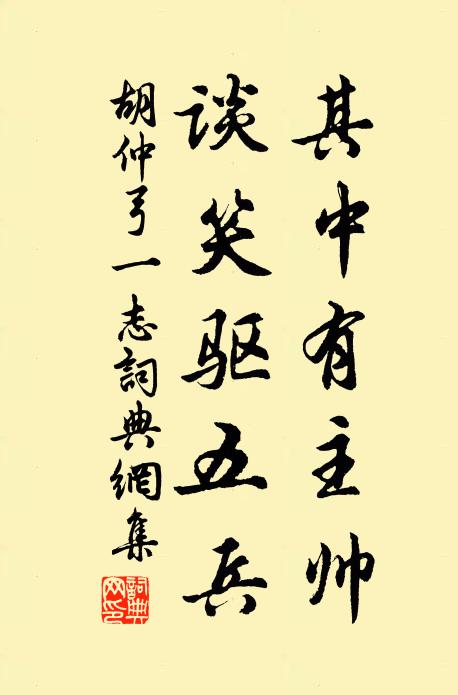 其中有主帅
谈笑驱五兵
胡仲弓一志詞典網集
詞典网印